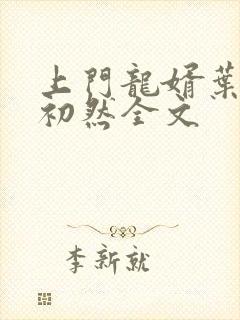 上門龍婿葉
初然全文
李新就